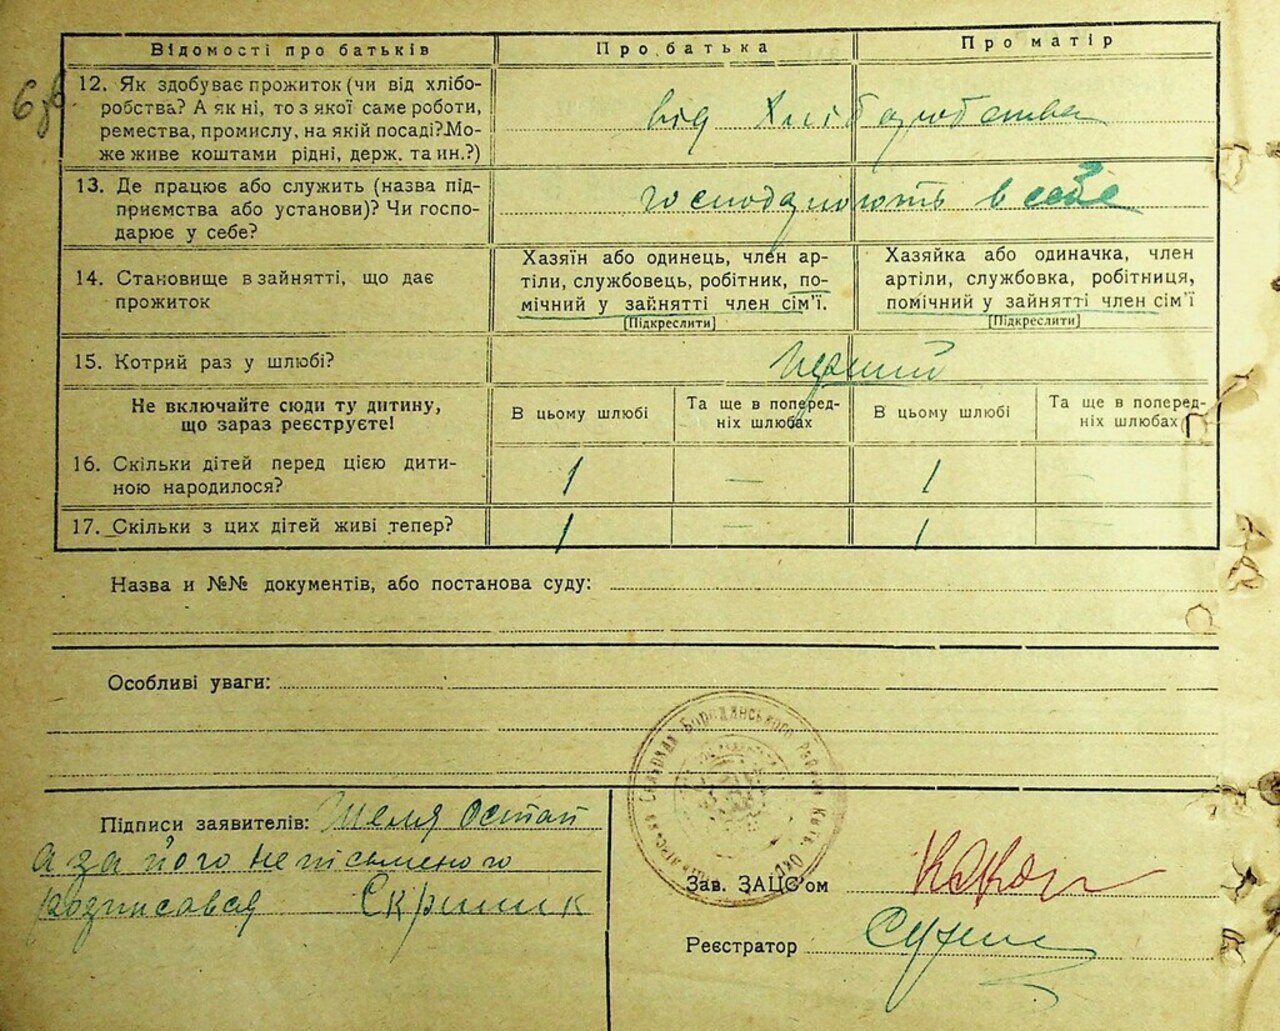 Відомості про батьків
Про батька
Про матір
12. Як здобуває прожиток (чи від хлібо-
робства? А як ні, то з якої саме роботи,
ремества, промислу, на якій посаді? Мо-
же живе коштами рідні, держ. та ин.?)
від хліборобства
13. Де працює або служить (назва під-
приємства або установи)? Чи госпо-
дарює у себе?
господарюють в себе
14. Становище в зайнятті, що дає
прожиток
Хазяїн або одинець, член ар-
тіли, службовець, робітник, по-
мічний у зайнятті член сім'ї.
[Підкреслити]
Хазяйка або одиначка, член
артіли, службовка, робітниця,
помічний у зайнятті член сім'ї
[Підкреслити]
15. Котрий раз у шлюбі?
перший
Не включайте сюди ту дитину,
що зараз реєструєте!
В цьому шлюбі
Та ще в поперед-
ніх шлюбах
В цьому шлюбі
Та ще в поперед-
ніх шлюбах
16. Скільки дітей перед цією дити-
ною народилося?
1 — 1 -
17. Скільки з цих дітей живі тепер?
1 — 1
Назва и №№ документів, або постанова суду:
Особливі уваги:
Сільрада Бородянського Району Київ. Окр.
Підписи заявителів: Шемя Остап
а за його неписьменого
розписався Скрипик
Зав. ЗАЦС'ом
Реєстратор